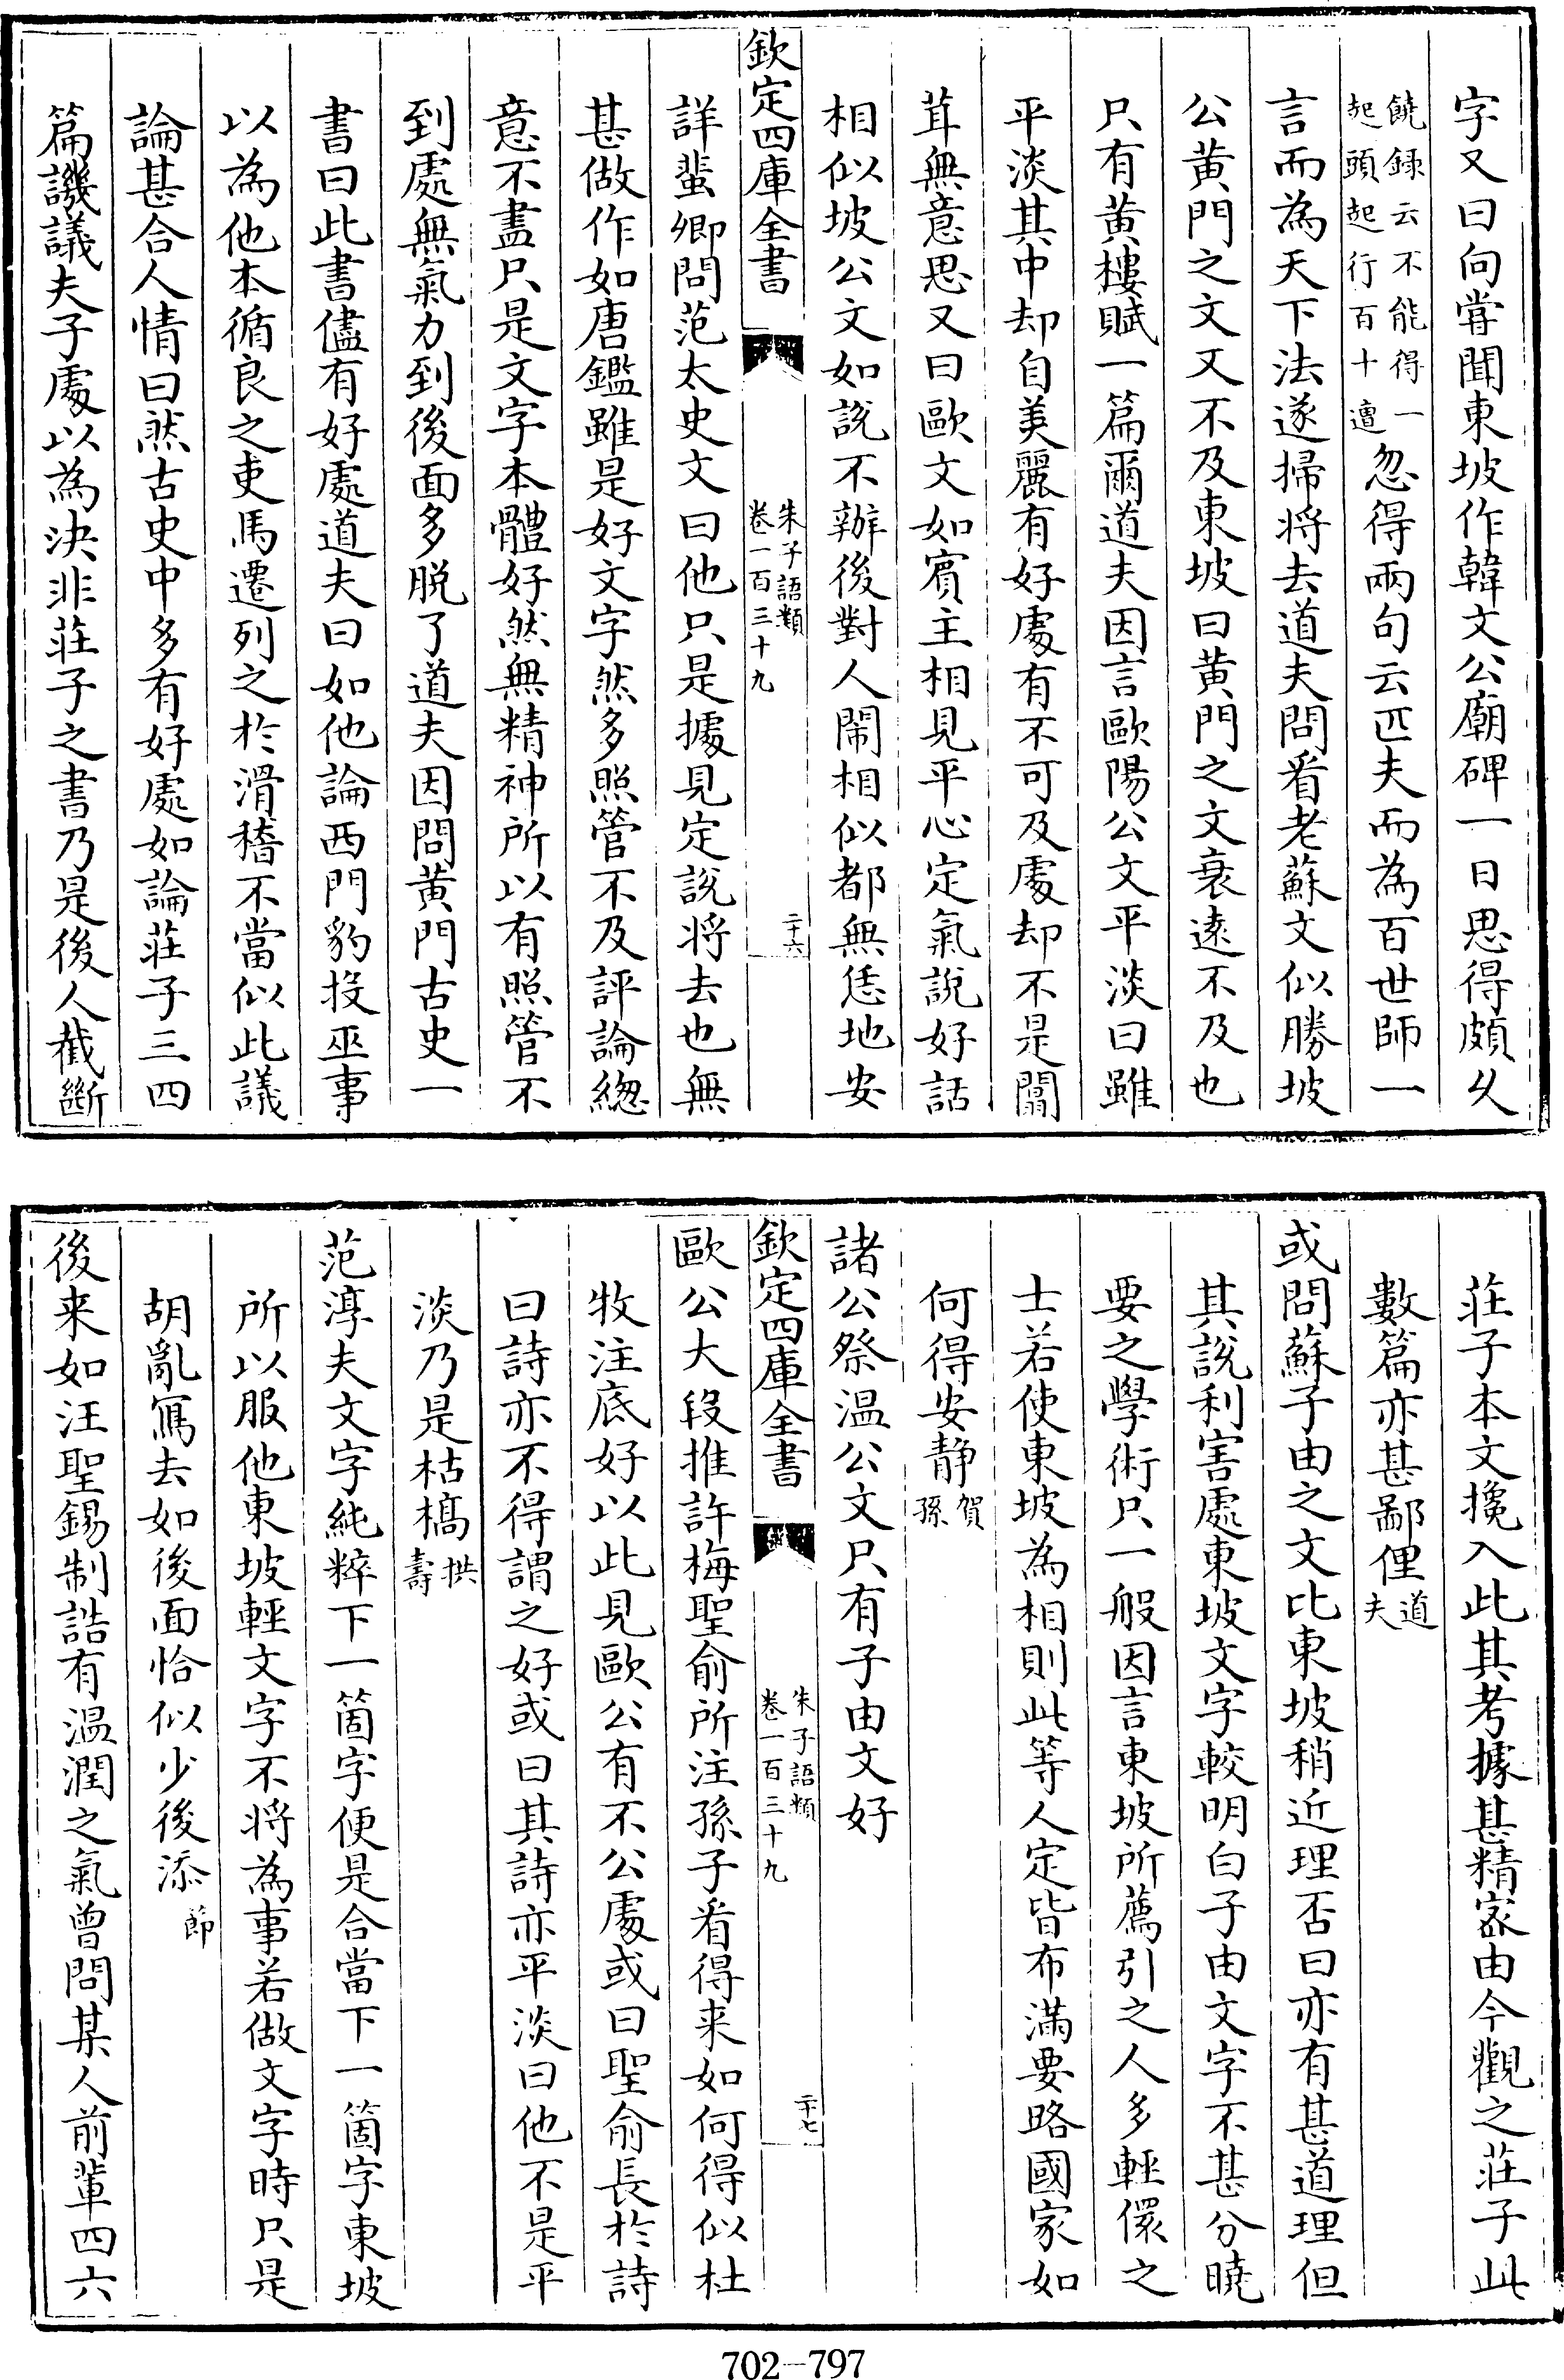 字又曰向嘗聞東坡作韓文公廟碑一日思得頗乆
饒録云不能得一
起頭起行百十遭
忽得兩句云匹夫而為百世師一
言而為天下法遂掃将去道夫問看老蘇文似勝坡
公黄門之文又不及東坡曰黄門之文衰逺不及也
只有黄樓賦一篇爾道夫因言歐陽公文平淡曰雖
平淡其中却自美麗有好處有不可及處却不是闒
茸無意思又曰歐文如賓主相見平心定氣說好話
相似坡公文如説不辦後對人閙相似都無恁地安
欽定四庫全書
朱子語類
卷一百三十九
二十六
詳蜚卿問范太史文曰他只是據見定説将去也無
甚做作如唐鑑雖是好文字然多照管不及評論總
意不盡只是文字本體好然無精神所以有照管不
到處無氣力到後面多脱了道夫因問黄門古史一
書曰此書儘有好處道夫曰如他論西門豹投巫事
以為他本循良之吏馬遷列之於滑稽不當似此議
論甚合人情曰然古史中多有好處如論莊子三四
篇譏議夫子處以為決非莊子之書乃是後人截斷
莊子本文攙入此其考據甚精宻由今觀之莊子此
數篇亦甚鄙俚
道
夫
或問蘇子由之文比東坡稍近理否曰亦有甚道理但
其説利害處東坡文字較明白子由文字不甚分曉
要之學術只一般因言東坡所薦引之人多輕儇之
士若使東坡為相則此等人定皆布滿要路國家如
何得安静
賀
孫
諸公祭温公文只有子由文好
欽定四庫全書
朱子語類
卷一百三十九
二十七
歐公大段推許梅聖俞所注孫子看得来如何得似杜
牧注底好以此見歐公有不公處或曰聖俞長於詩
曰詩亦不得謂之好或曰其詩亦平淡曰他不是平
淡乃是枯槁
拱
壽
范淳夫文字純粹下一箇字便是合當下一箇字東坡
所以服他東坡輕文字不将為事若做文字時只是
胡亂寫去如後面恰似少後添
節
後来如汪聖錫制誥有温潤之氣曾問某人前輩四六
702-797